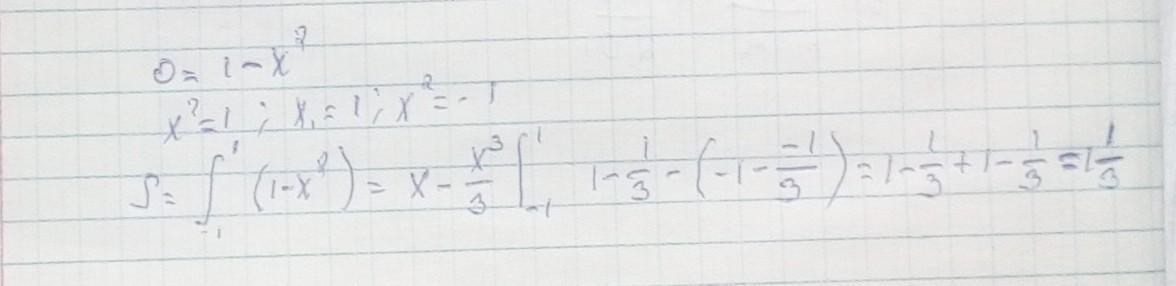 0 = 1 - x²
x² = 1 ; x₁ = 1 ; x² = - 1
S = ∫₋₁¹ (1-x²) = x - x³/3 |₋₁¹ 1 - 1/3 - (-1 - -1/3) = 1 - 1/3 + 1 - 1/3 = 1 1/3